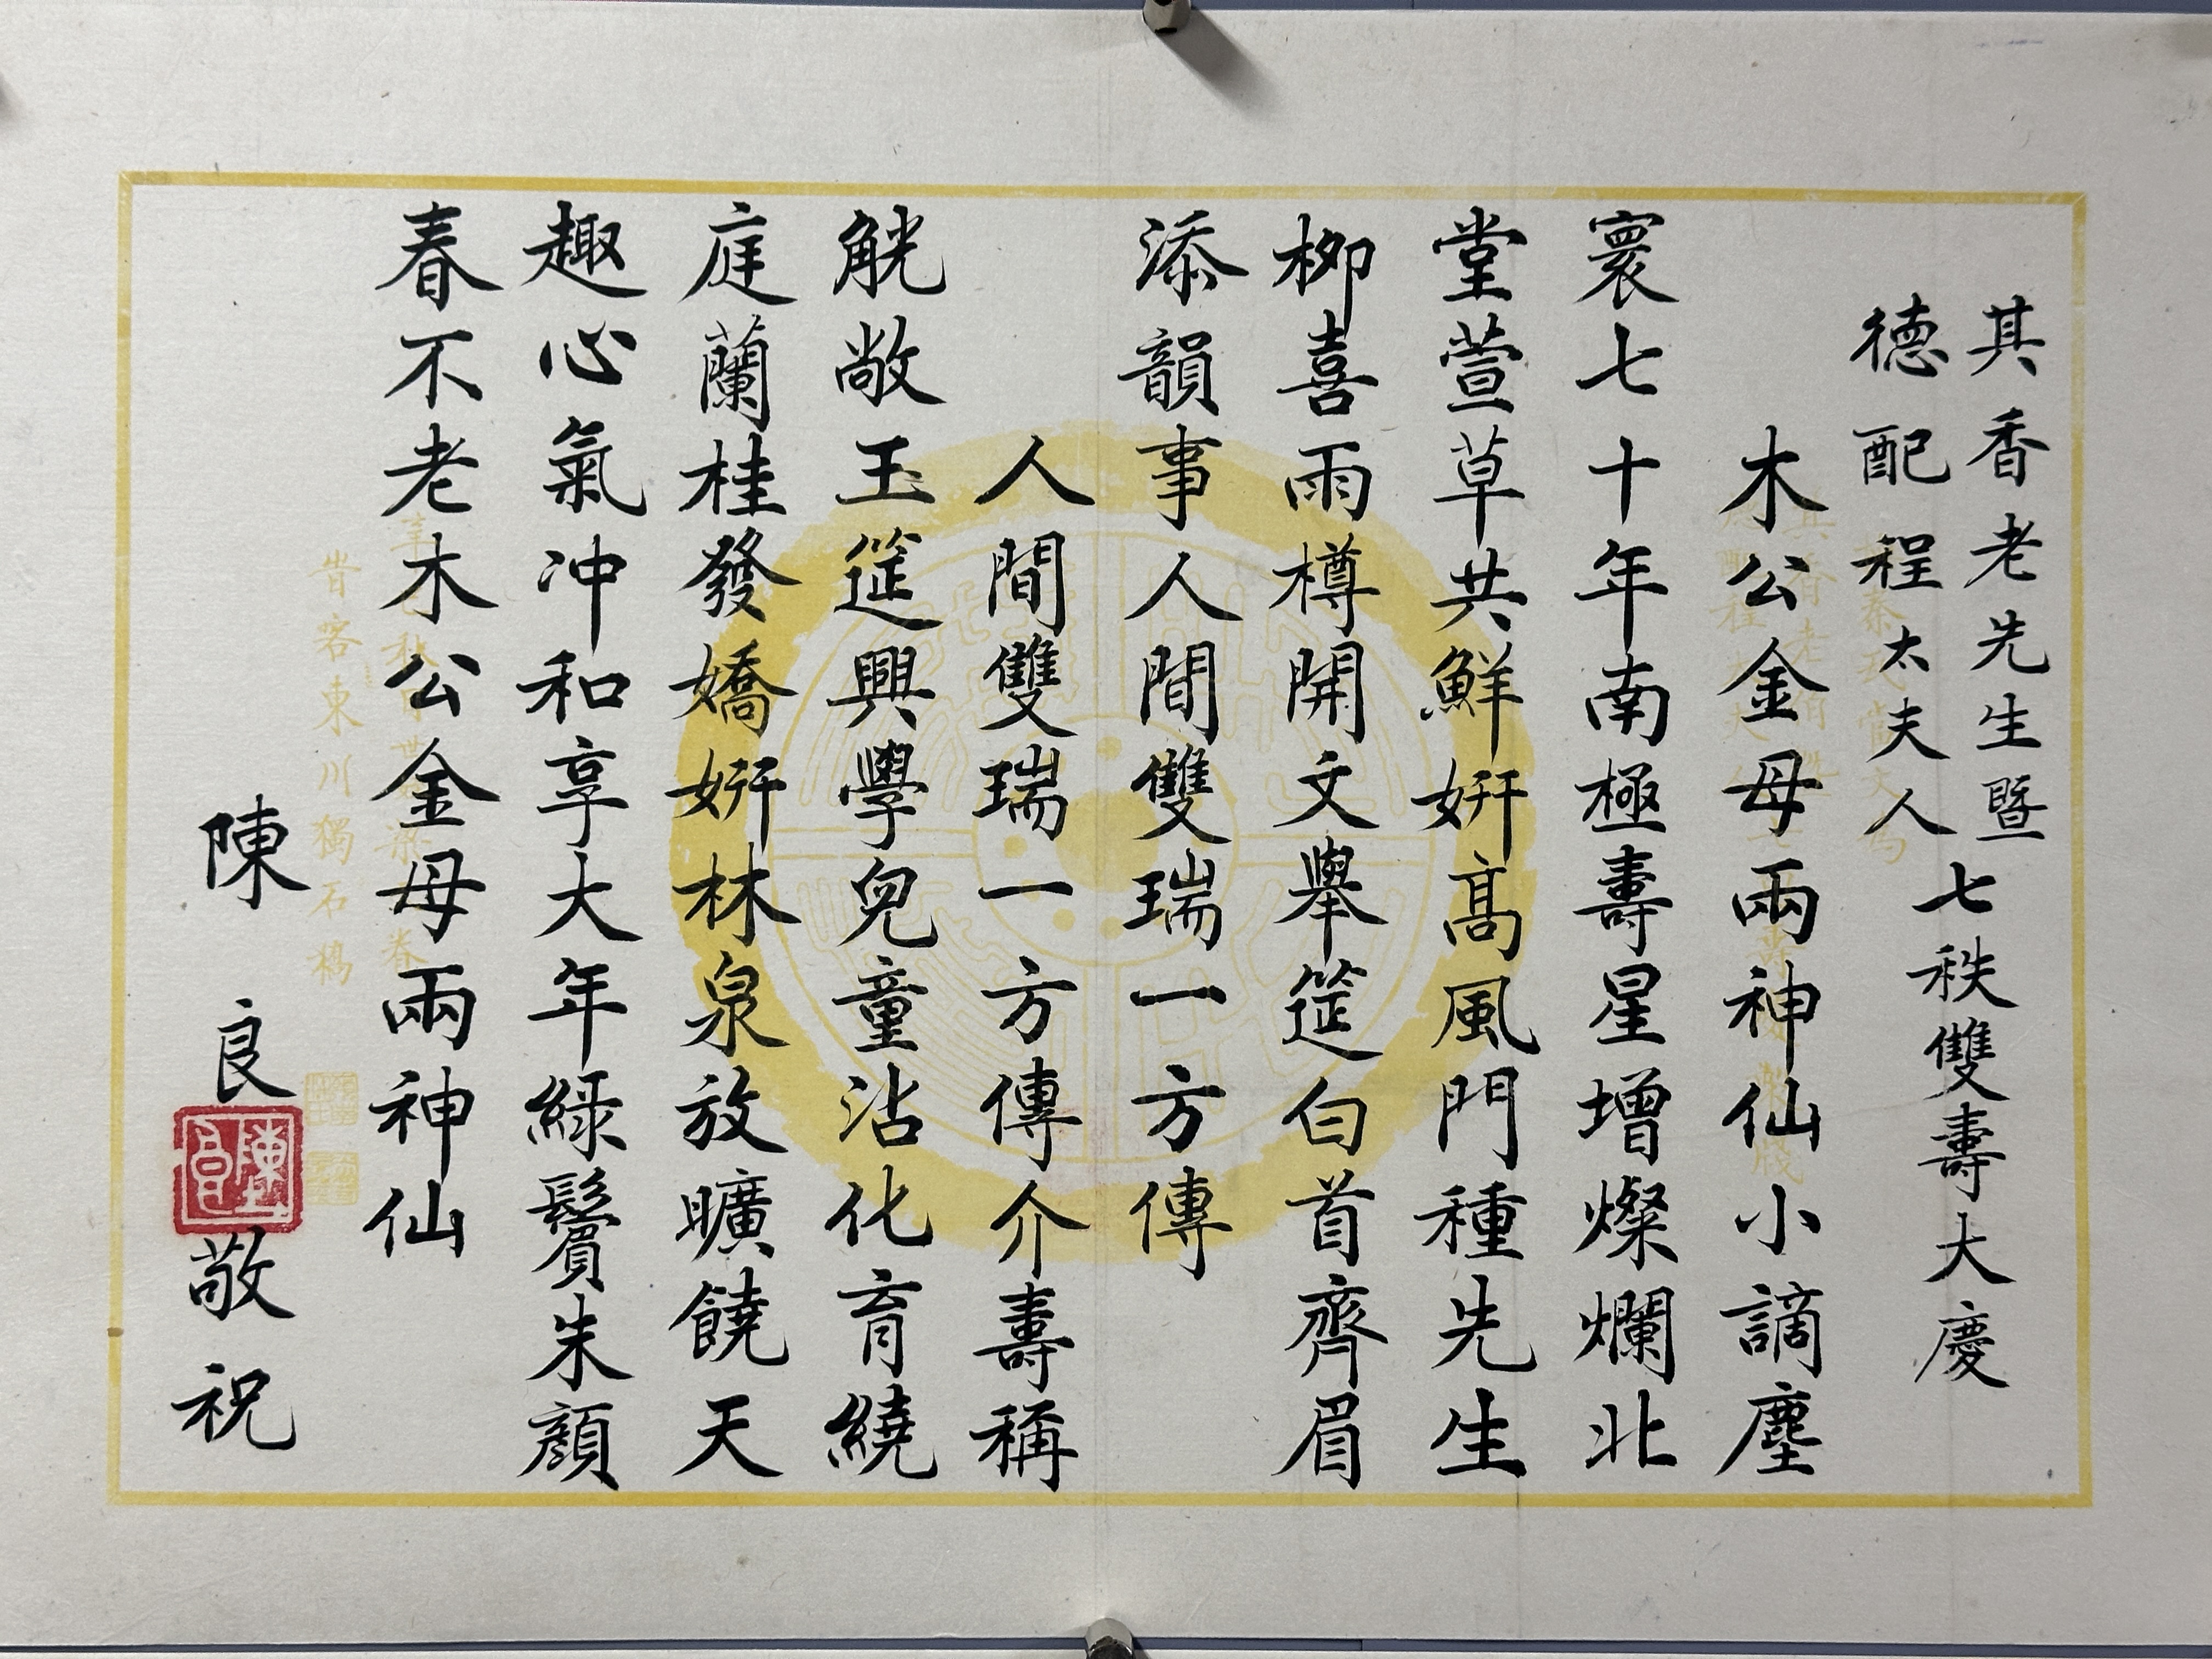 其香老先生暨
德配程太夫人
七秩雙壽大慶
木公金母兩神仙小謫塵
寰七十年南極壽星增燦爛北
堂萱草共鮮妍高風門種先生
柳喜雨樽開文舉筵白首齊眉
添韻事人間雙瑞一方傳
人間雙瑞一方傳介壽稱
觥敞玉筵興學兒童沾化育繞
庭蘭桂發嬌妍林泉放曠饒天
趣心氣冲和享大年綠鬢朱顏
春不老木公金母兩神仙
陳良敬祝
昔客東川獨石橋